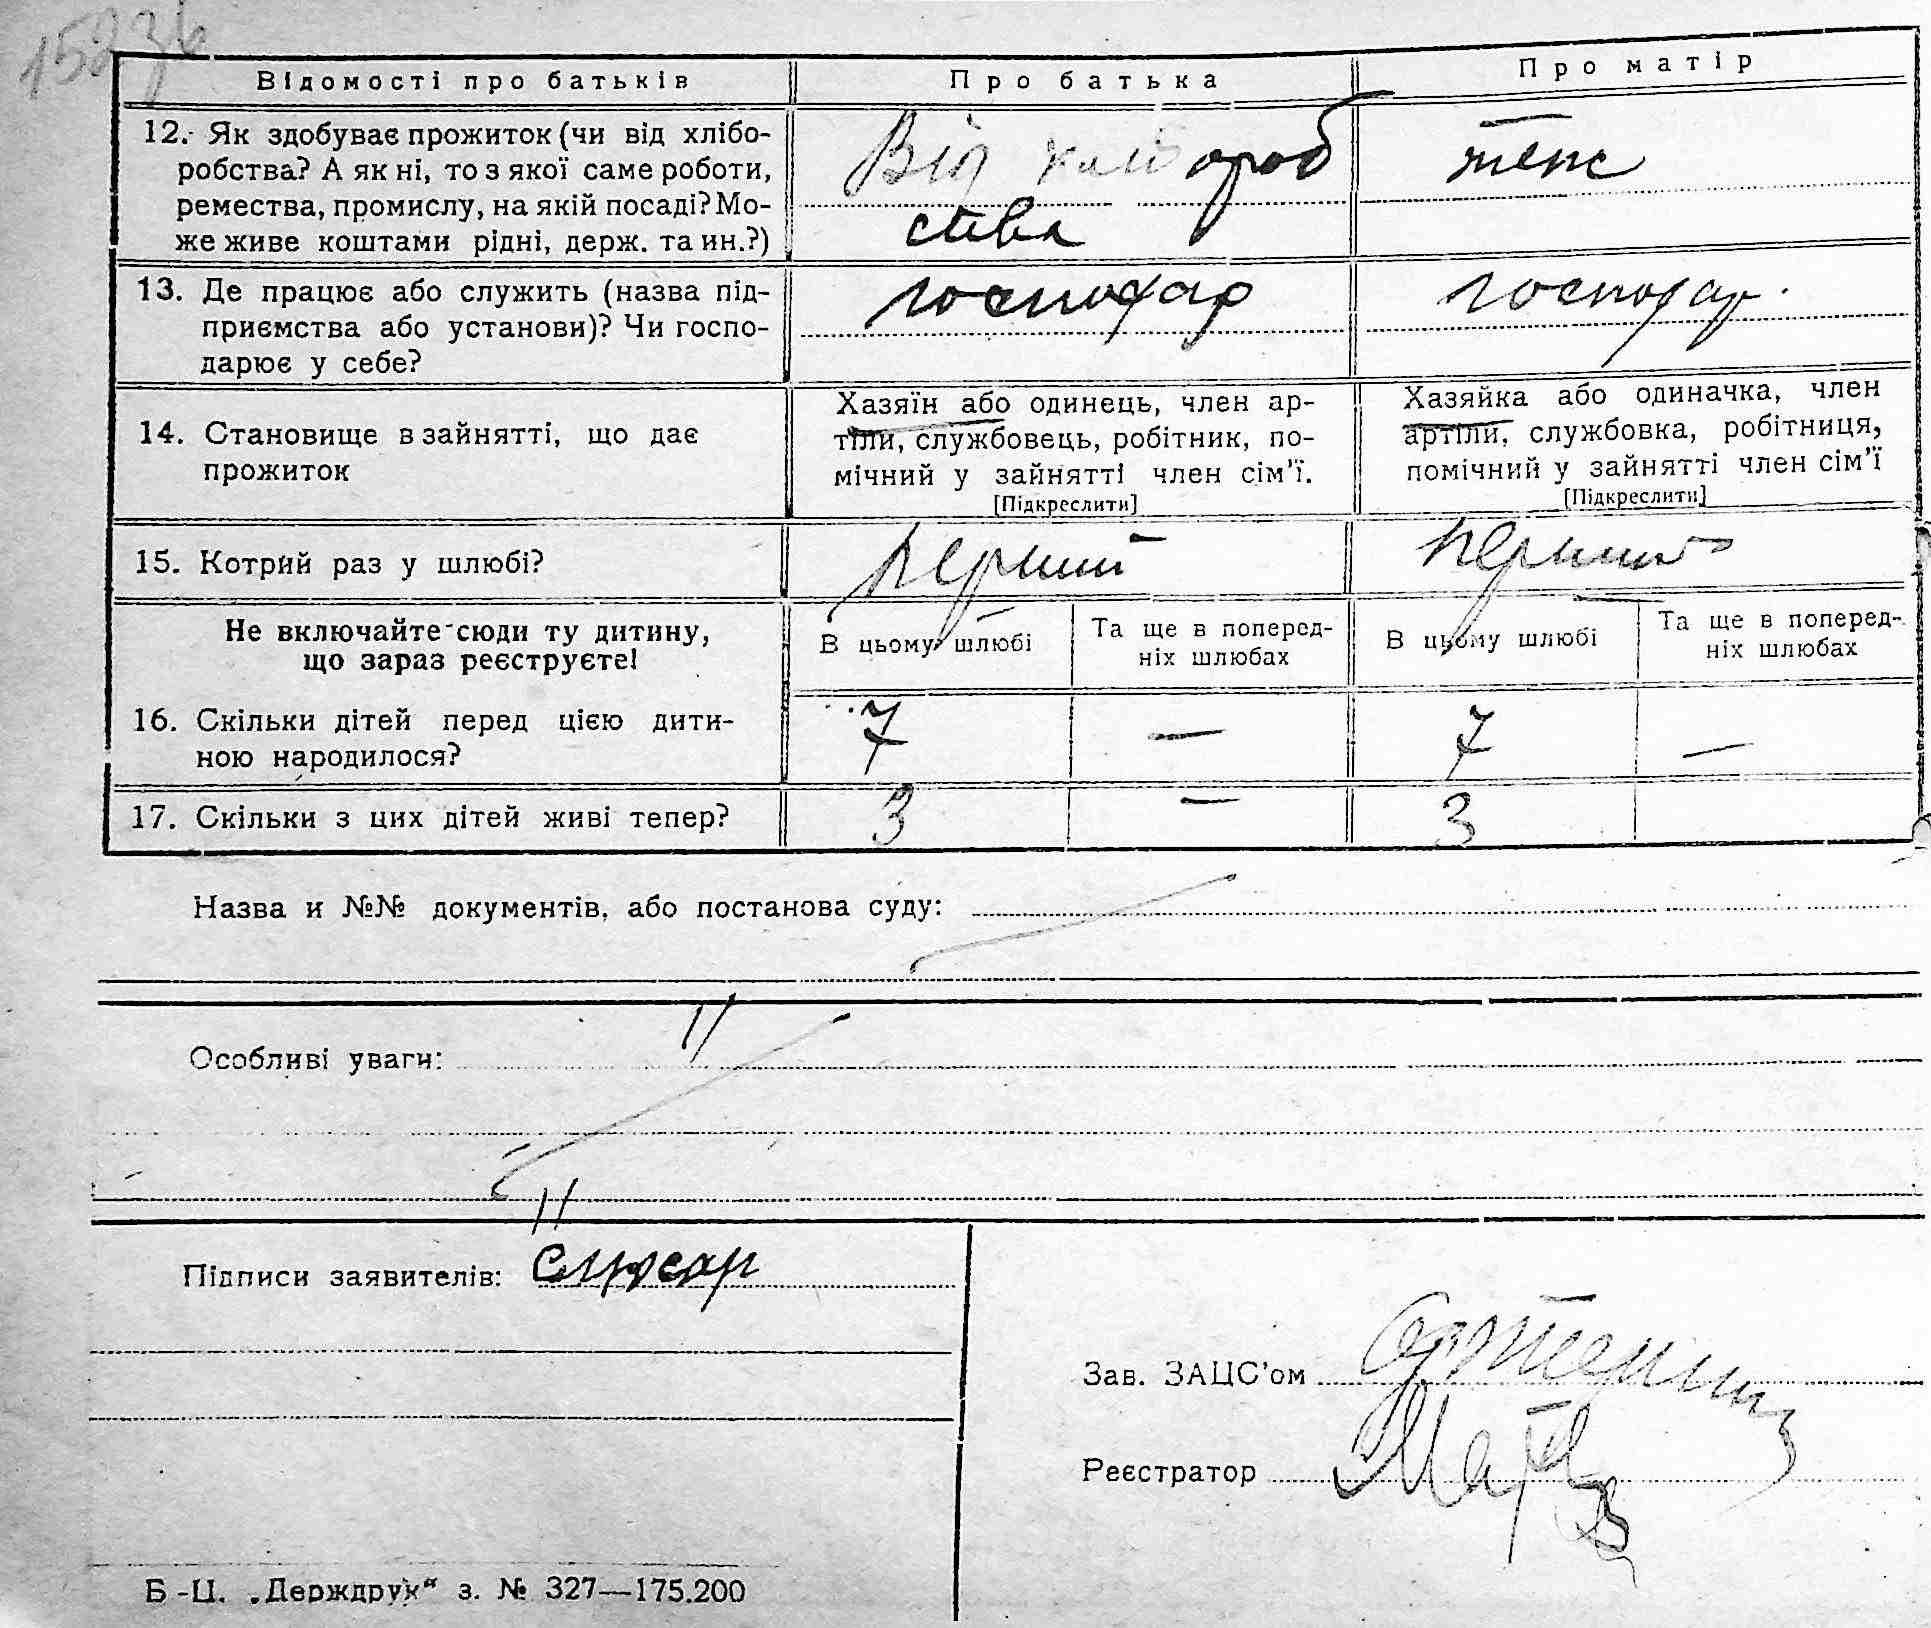 Відомості про батьків Про батька Про матір
12. Як здобуває прожиток (чи від хлібо-
робства? А як ні, то з якої саме роботи,
ремества, промислу, на якій посаді? Мо-
же живе коштами рідні, держ. та ин.?)
Від хлібороб
ства
теж
13. Де працює або служить (назва під-
приємства або установи)? Чи госпо-
дарює у себе?
господар
господар.
14. Становище в зайнятті, що дає
прожиток
Хазяїн або одинець, член ар-
тіли, службовець, робітник, по-
мічний у зайнятті член сім'ї.
[Підкреслити]
Хазяйка або одиначка, член
артіли, службовка, робітниця,
помічний у зайнятті член сім'ї
[Підкреслити]
15. Котрий раз у шлюбі?
перший
перший
Не включайте сюди ту дитину,
що зараз реєструєте!
В цьому шлюбі
Та ще в поперед-
ніх шлюбах
В цьому шлюбі
Та ще в поперед-
ніх шлюбах
16. Скільки дітей перед цією дити-
ною народилося?
7 — 7 —
17. Скільки з цих дітей живі тепер?
3 — 3
Назва и №№ документів, або постанова суду:
Особливі уваги:
Підписи заявителів: Слюсар
Зав. ЗАЦС'ом
Реєстратор
Б-Ц. „Держдрук“ з. № 327—175.200